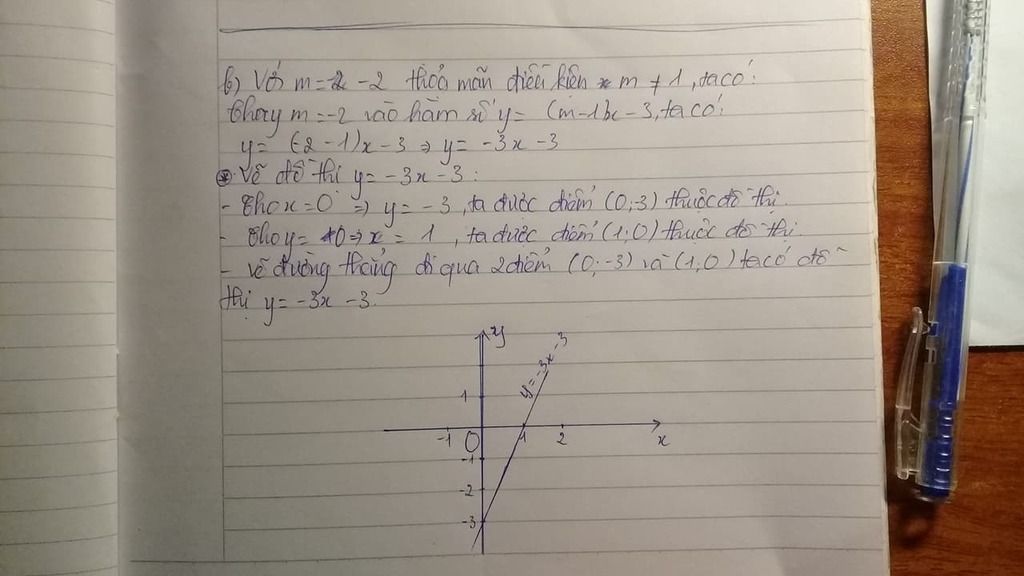 b) Với m = -2 thoả mãn điều kiện m ≠ 1, ta có:
Thay m = -2 vào hàm số y = (m-1)x - 3, ta có:
y = (-2 - 1)x - 3 ⇒ y = -3x - 3
* Vẽ đồ thị y = -3x - 3 :
- Cho x = 0 ⇒ y = -3, ta được điểm (0;-3) thuộc đồ thị.
- Cho y = 0 ⇒ x = 1, ta được điểm (1;0) thuộc đồ thị.
- vẽ đường thẳng đi qua 2 điểm (0;-3) và (1;0) ta có đồ
thị y = -3x - 3.
y
y = -3x - 3
1
-1 O 1 2 x
-1
-2
-3